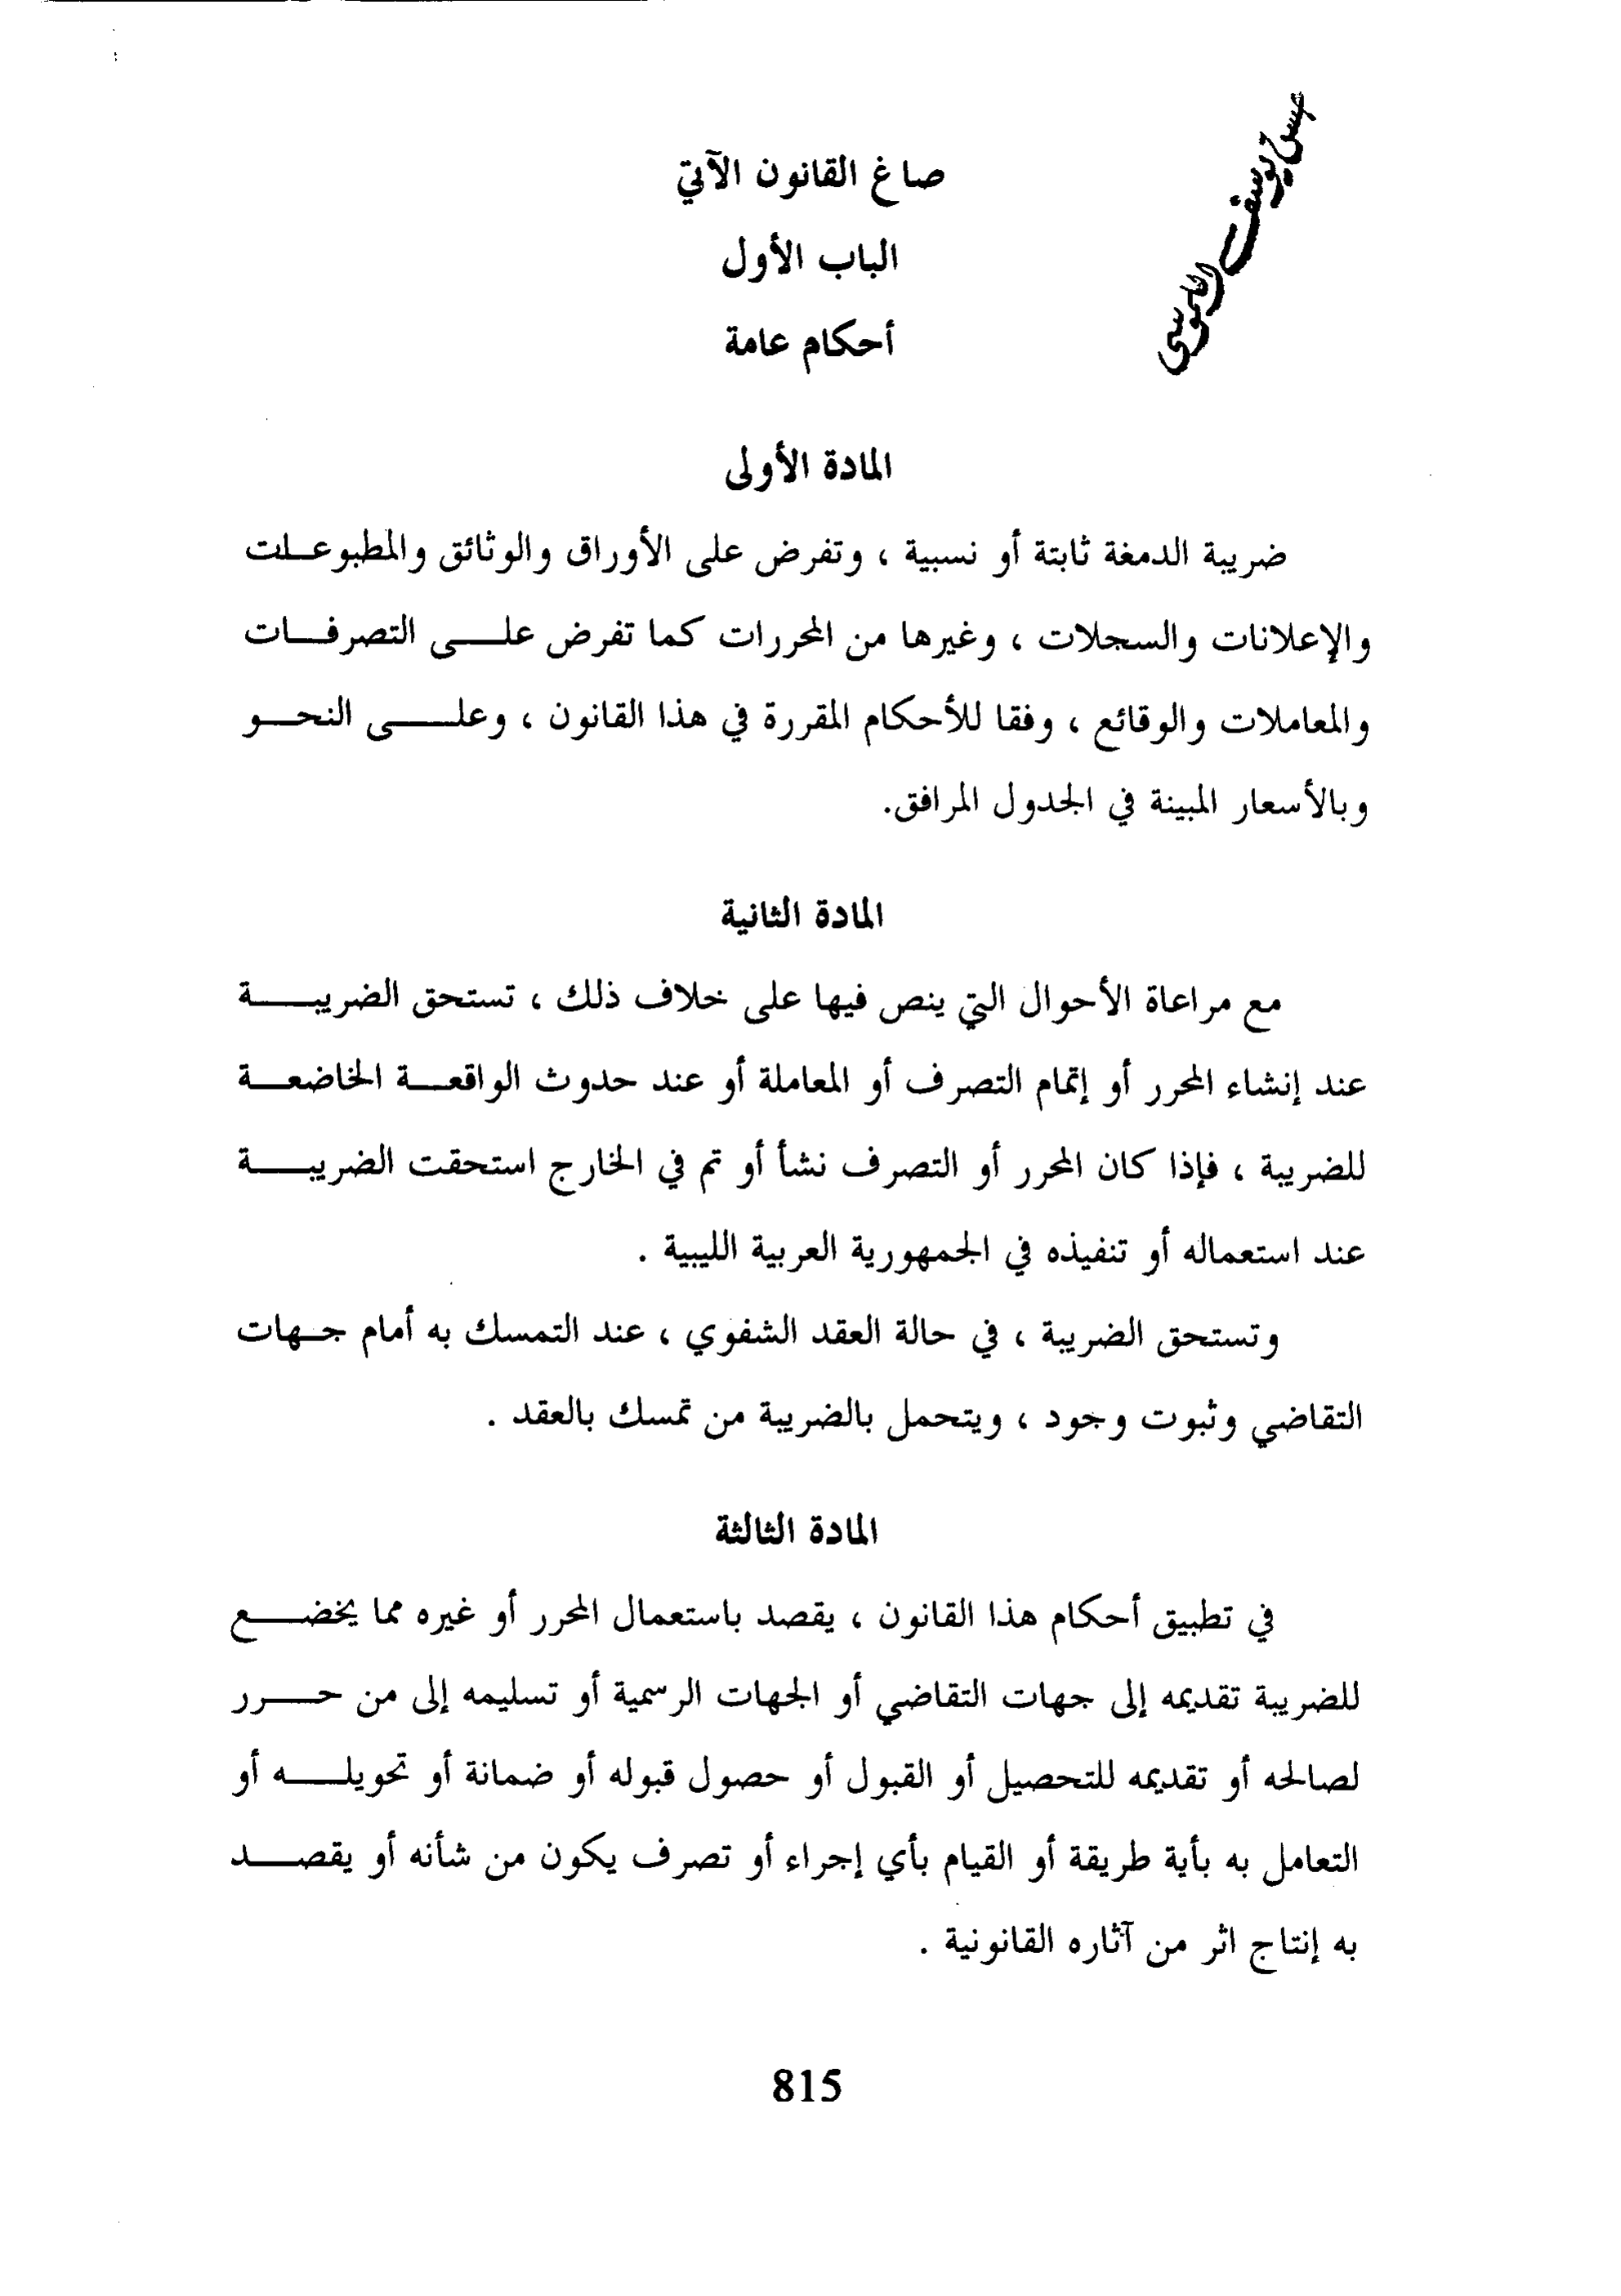 صاغ القانون الآتي
الباب الأول
أحكام عامة
المادة الأولى
ضريبة الدمغة ثابتة أو نسبية ، وتفرض على الأوراق والوثائق والمطبوعات
والإعلانات والسجلات ، وغيرها من المحررات كما تفرض على التصرفات
والمعاملات والوقائع ، وفقا للأحكام المقررة في هذا القانون ، وعلى النحو
وبالأسعار المبينة في الجدول المرافق.
المادة الثانية
مع مراعاة الأحوال التي ينص فيها على خلاف ذلك ، تستحق الضريبة
عند إنشاء المحرر أو إتمام التصرف أو المعاملة أو عند حدوث الواقعة الخاضعة
للضريبة ، فإذا كان المحرر أو التصرف نشأ أو تم في الخارج استحقت الضريبة
عند استعماله أو تنفيذه في الجمهورية العربية الليبية .
وتستحق الضريبة ، في حالة العقد الشفوي ، عند التمسك به أمام جهات
التقاضي وثبوت وجود ، ويتحمل بالضريبة من تمسك بالعقد .
المادة الثالثة
في تطبيق أحكام هذا القانون ، يقصد باستعمال المحرر أو غيره مما يخضع
للضريبة تقديمه إلى جهات التقاضي أو الجهات الرسمية أو تسليمه إلى من حرر
لصالحه أو تقديمه للتحصيل أو القبول أو حصول قبوله أو ضمانة أو تحويله أو
التعامل به بأية طريقة أو القيام بأي إجراء أو تصرف يكون من شأنه أو يقصد
به إنتاج اثر من آثاره القانونية .
815